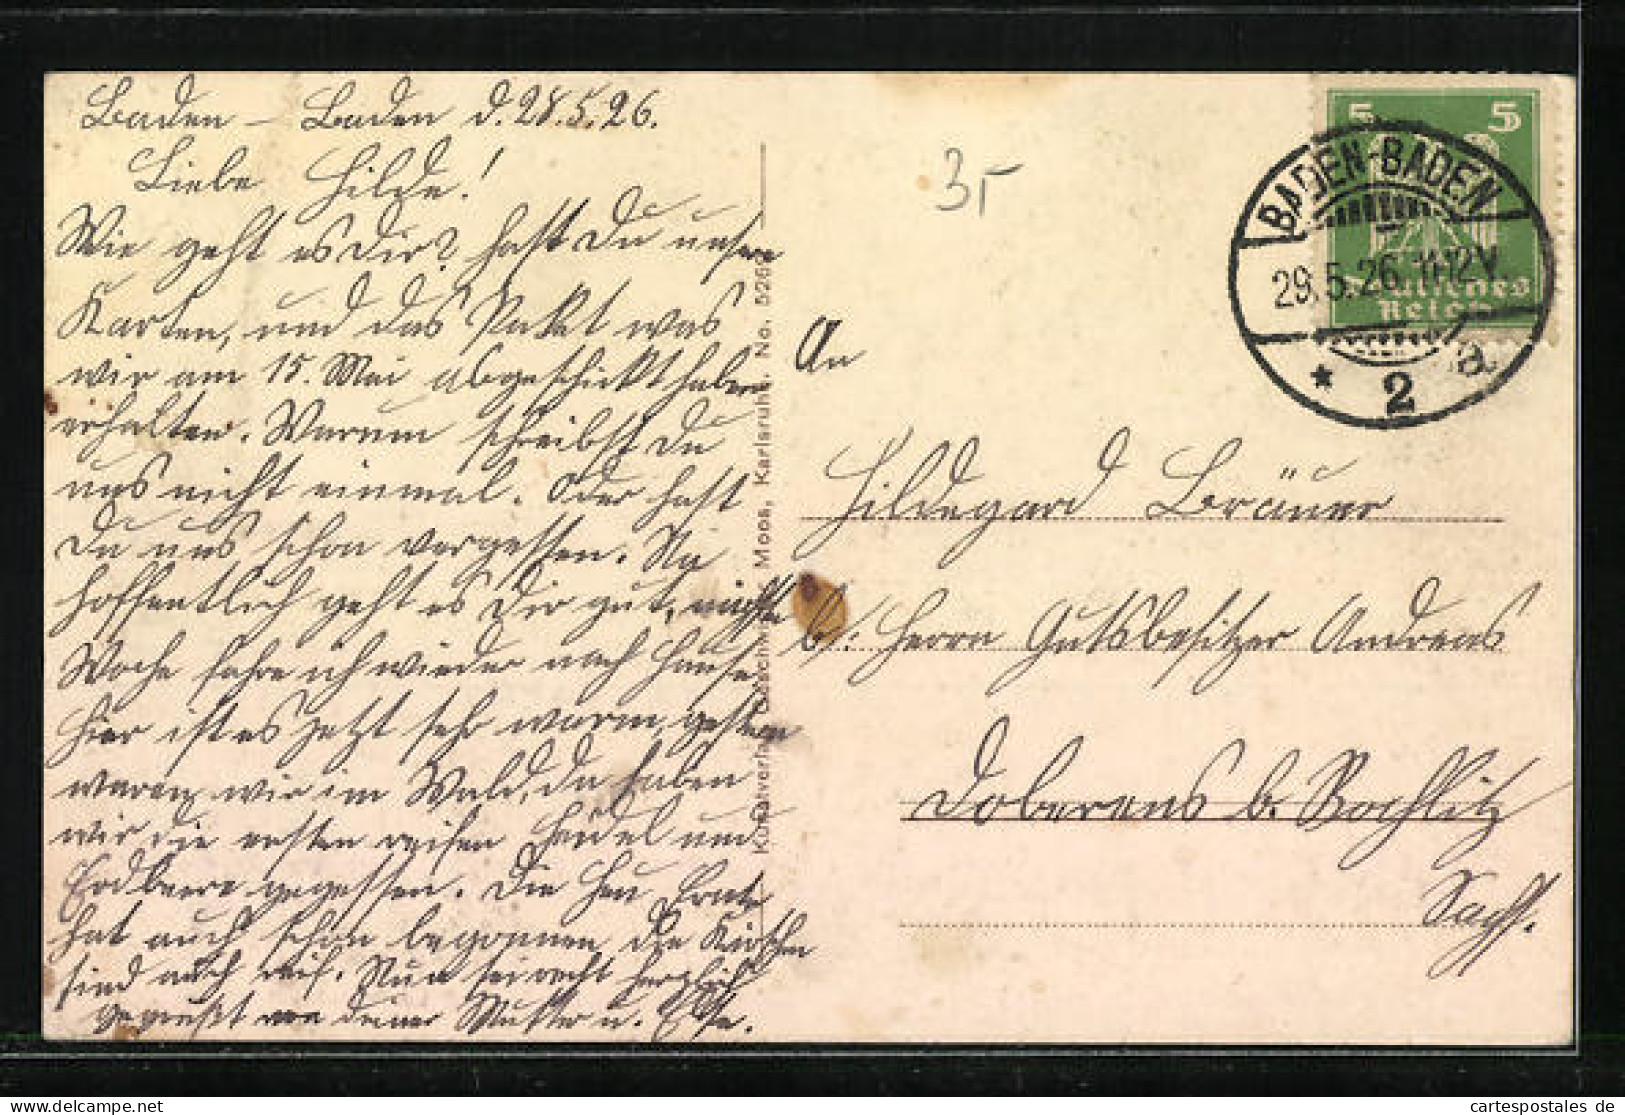 Baden – Baden d. 28.5.26.
Liebe Hilde!
Wie geht es Dir? hast Du unsere
Karten, und das Paket was
wir am 15. Mai abgeschickt haben
erhalten. Warum schreibst Du
uns nicht einmal. Oder hast
Du uns schon vergessen. Na
hoffentlich geht es Dir gut, nächste
Woche fahre ich wieder nach Hause.
Hier ist es jetzt sehr warm, gestern
waren wir im Wald, da haben
wir die ersten reifen Heidel und
Erdbeere gegessen. Die Heu Ernte
hat auch schon begonnen die Kirschen
sind auch reif. Nun sei recht herzlich
gegrüßt von deiner Mutter u.
Kunstverlag Moos, Karlsruhe. No. 5262
3,-
5 5
Deutsches
Reich
BADEN-BADEN
29.5.26. 11-12V.
* 2 a.
An
Hildegard Bräuer
b/: Herrn Gutsbesitzer Andreas
Doberenz b. Rochlitz
Sachs.
delcampe.net
cartespostales de